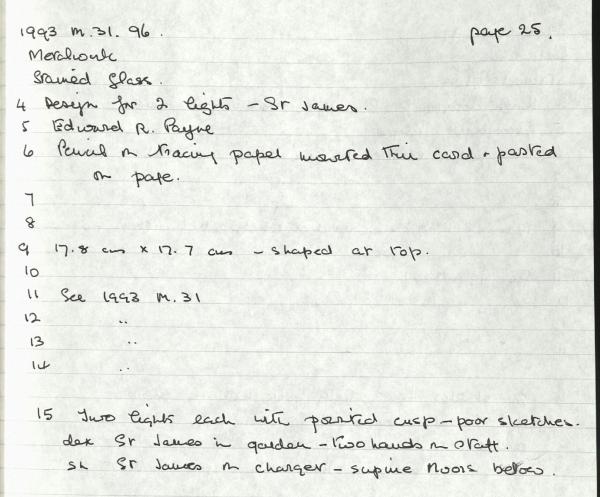 1993 M.31.96. page 25.
Merchant
Stained Glass.
4 Design for 2 lights - St James.
5 Edward R. Payne
6 Pencil on tracing paper mounted thin card + pasted
on page.
7
8
9 17.8 cms x 17.7 cms - shaped at top.
10
11 See 1993 M.31
12 ..
13 ..
14 ..
15 Two lights each with pointed cusp - poor sketches.
dex St James in garden - two hands on staff.
sin St James on charger - supine Moors below.